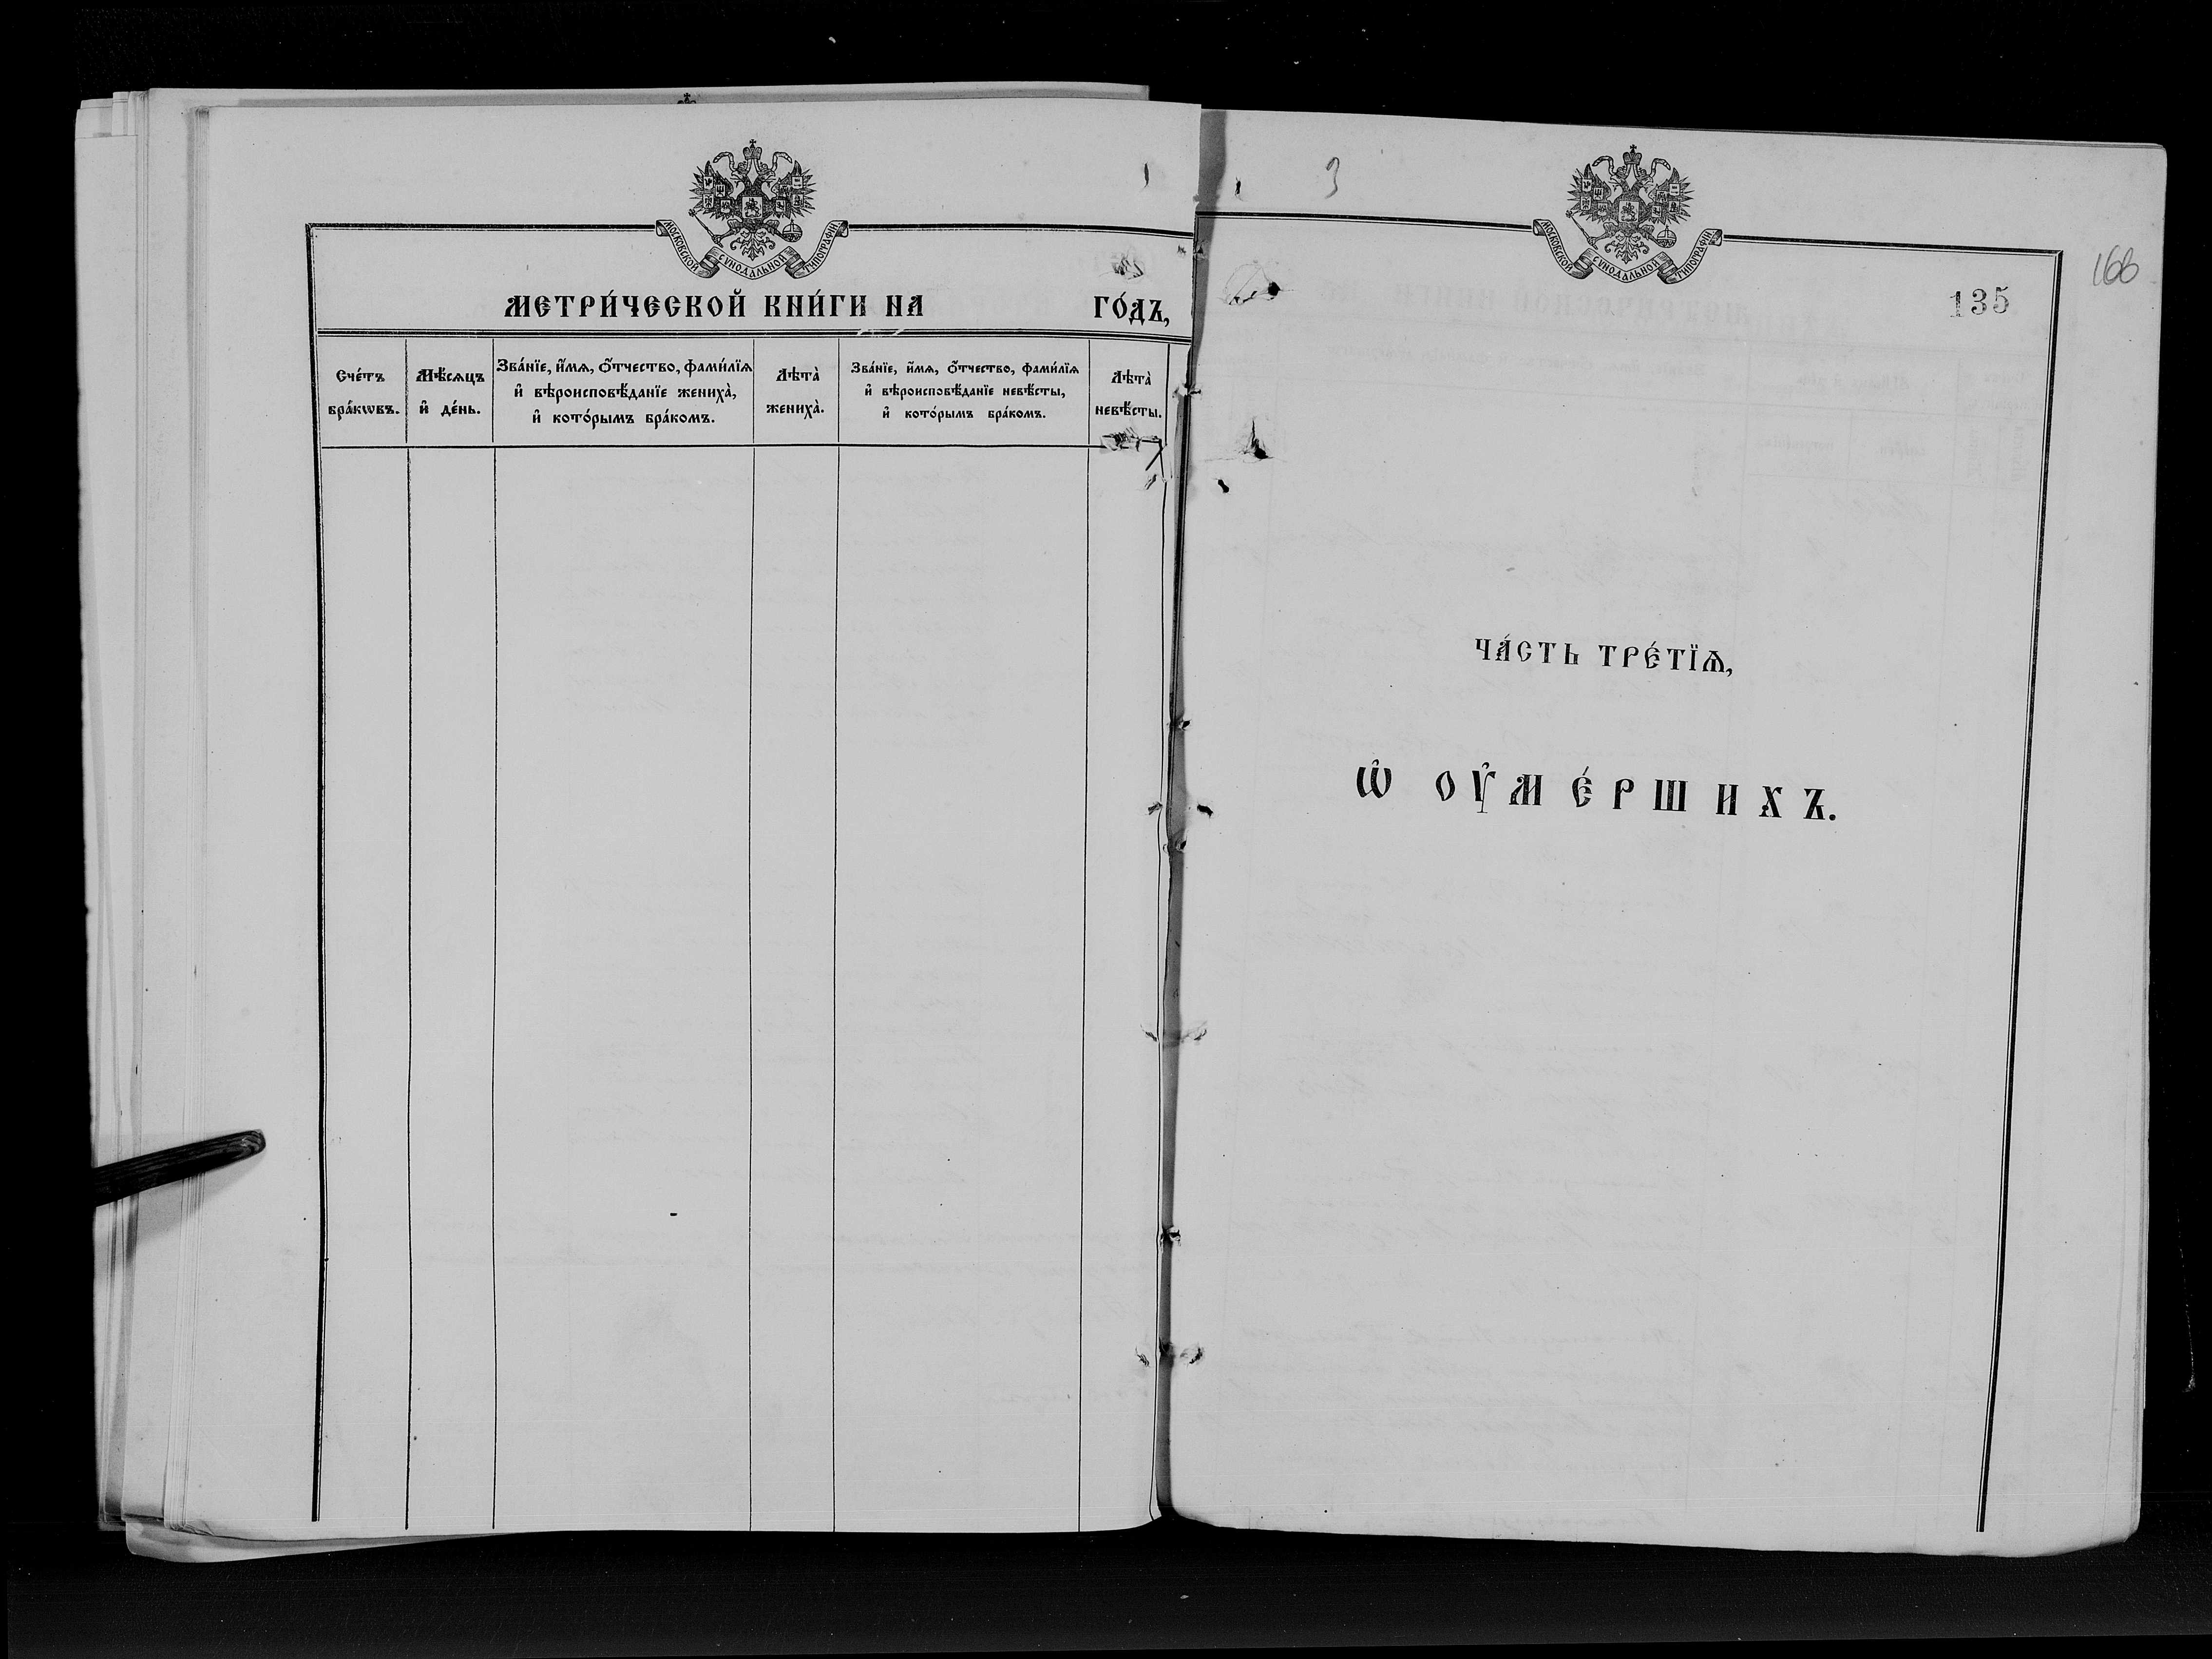 МОСКОВСКОЙ СѴНОДАЛЬНОЙ ТИПОГРАФІИ
МЕТРИ́ЧЕСКОЙ КНИ́ГИ НА ГО́ДЪ,
Сче́тъ бра́кѡвъ.
Мѣ́сѧцъ и҆ де́нь.
Зва́нїе, и҆́мѧ, ѻ҆́тчество, фами́лїѧ
и҆ вѣроисповѣ́данїе жениха̀,
и҆ кото́рымъ бра́комъ.
Лѣта̀ жениха̀.
Зва́нїе, и҆́мѧ, ѻ҆́тчество, фами́лїѧ
и҆ вѣроисповѣ́данїе невѣ́сты,
и҆ кото́рымъ бра́комъ.
Лѣта̀ невѣ́сты.
3
МОСКОВСКОЙ СѴНОДАЛЬНОЙ ТИПОГРАФІИ
166
135
ЧА́СТЬ ТРЕ́ТЇѦ,
Ѡ҆ ОУ҆МЕ́РШИХЪ.